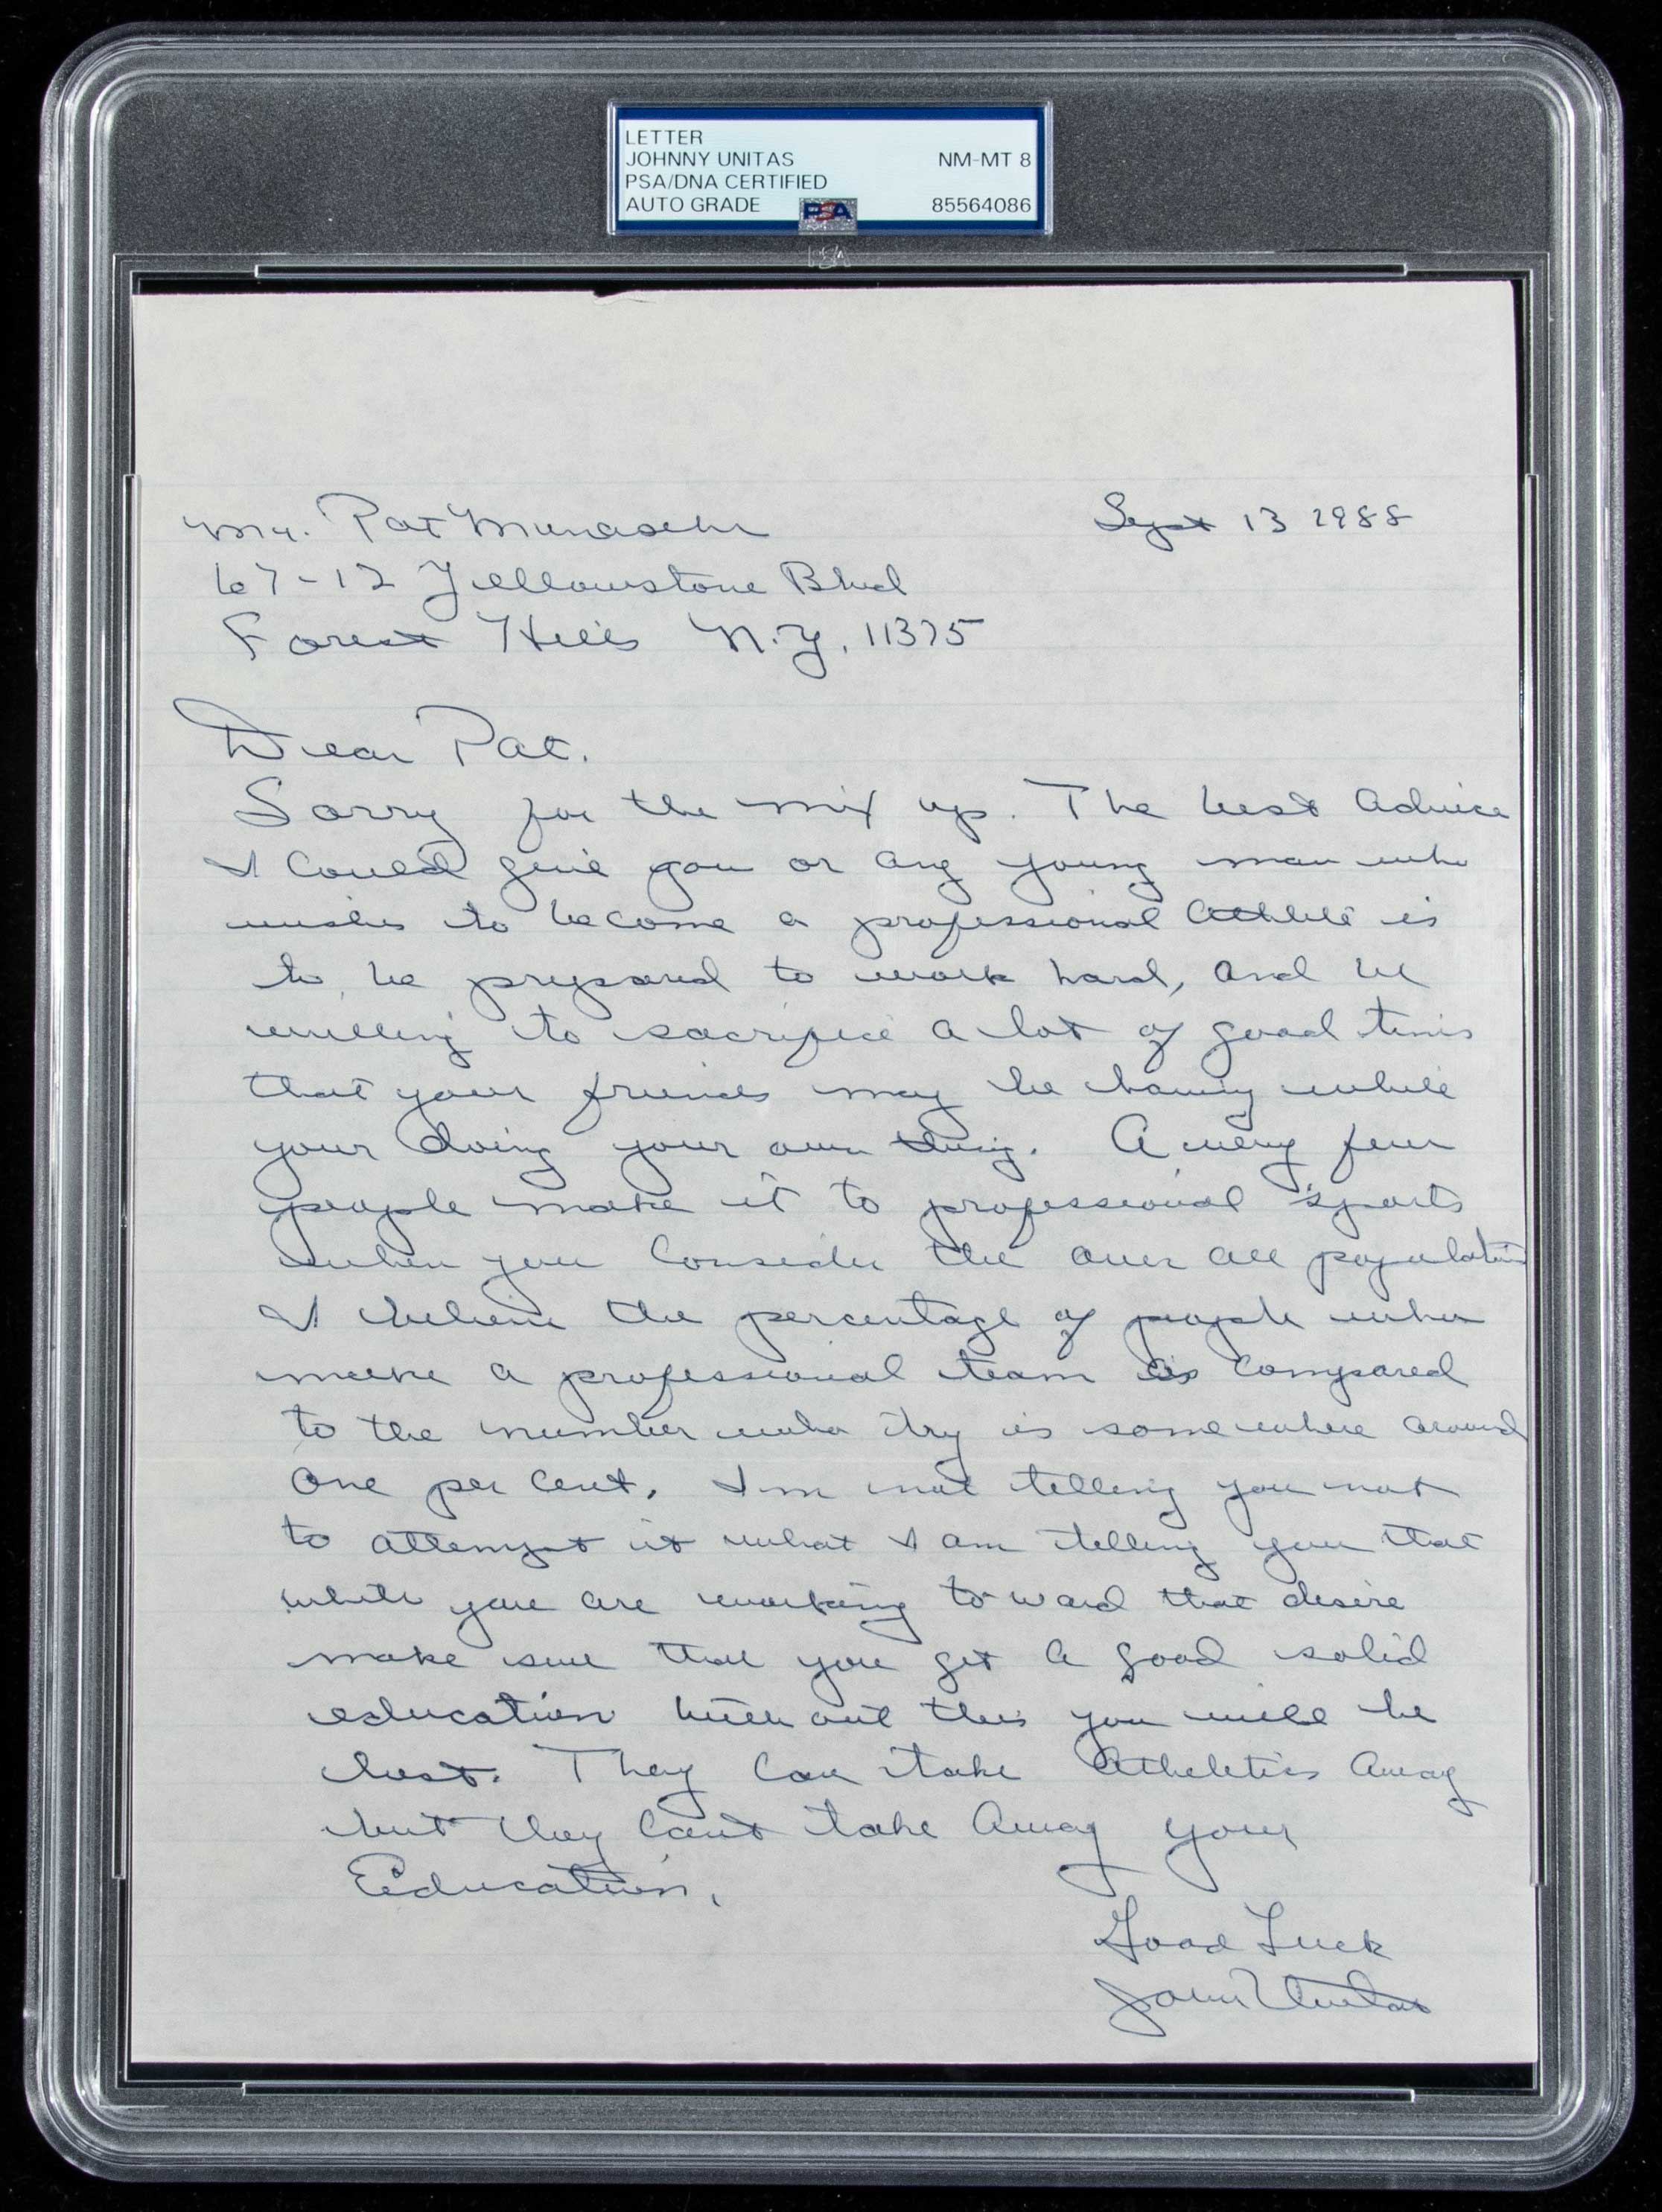 LETTER
JOHNNY UNITAS NM-MT 8
PSA/DNA CERTIFIED
AUTO GRADE PSA 85564086
PSA
Mr. Pat Sept 13 1988
67-12 Yellowstone Blvd
Forest Hills N.Y. 11375
Dear Pat.
Sorry for the mix up. The best advice
I could give you or any young man who
wishes to become a professional Athlete is
to be prepared to work hard, and be
willing to sacrifice a lot of good times
that your friends may be having while
your doing your own thing. A very few
people make it to professional sports
when you consider the over all population
I believe the percentage of people who
make a professional team as compared
to the number who try is somewhere around
one per cent. I'm not telling you not
to attempt it what I am telling you that
while you are working to ward that desire
make sure that you get a good solid
education with out this you will be
lost. They can take Atheletics away
but they can't take away your
Education.
Good Luck
John Unitas